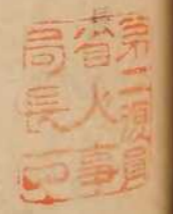 第二復員
省人事
局長印